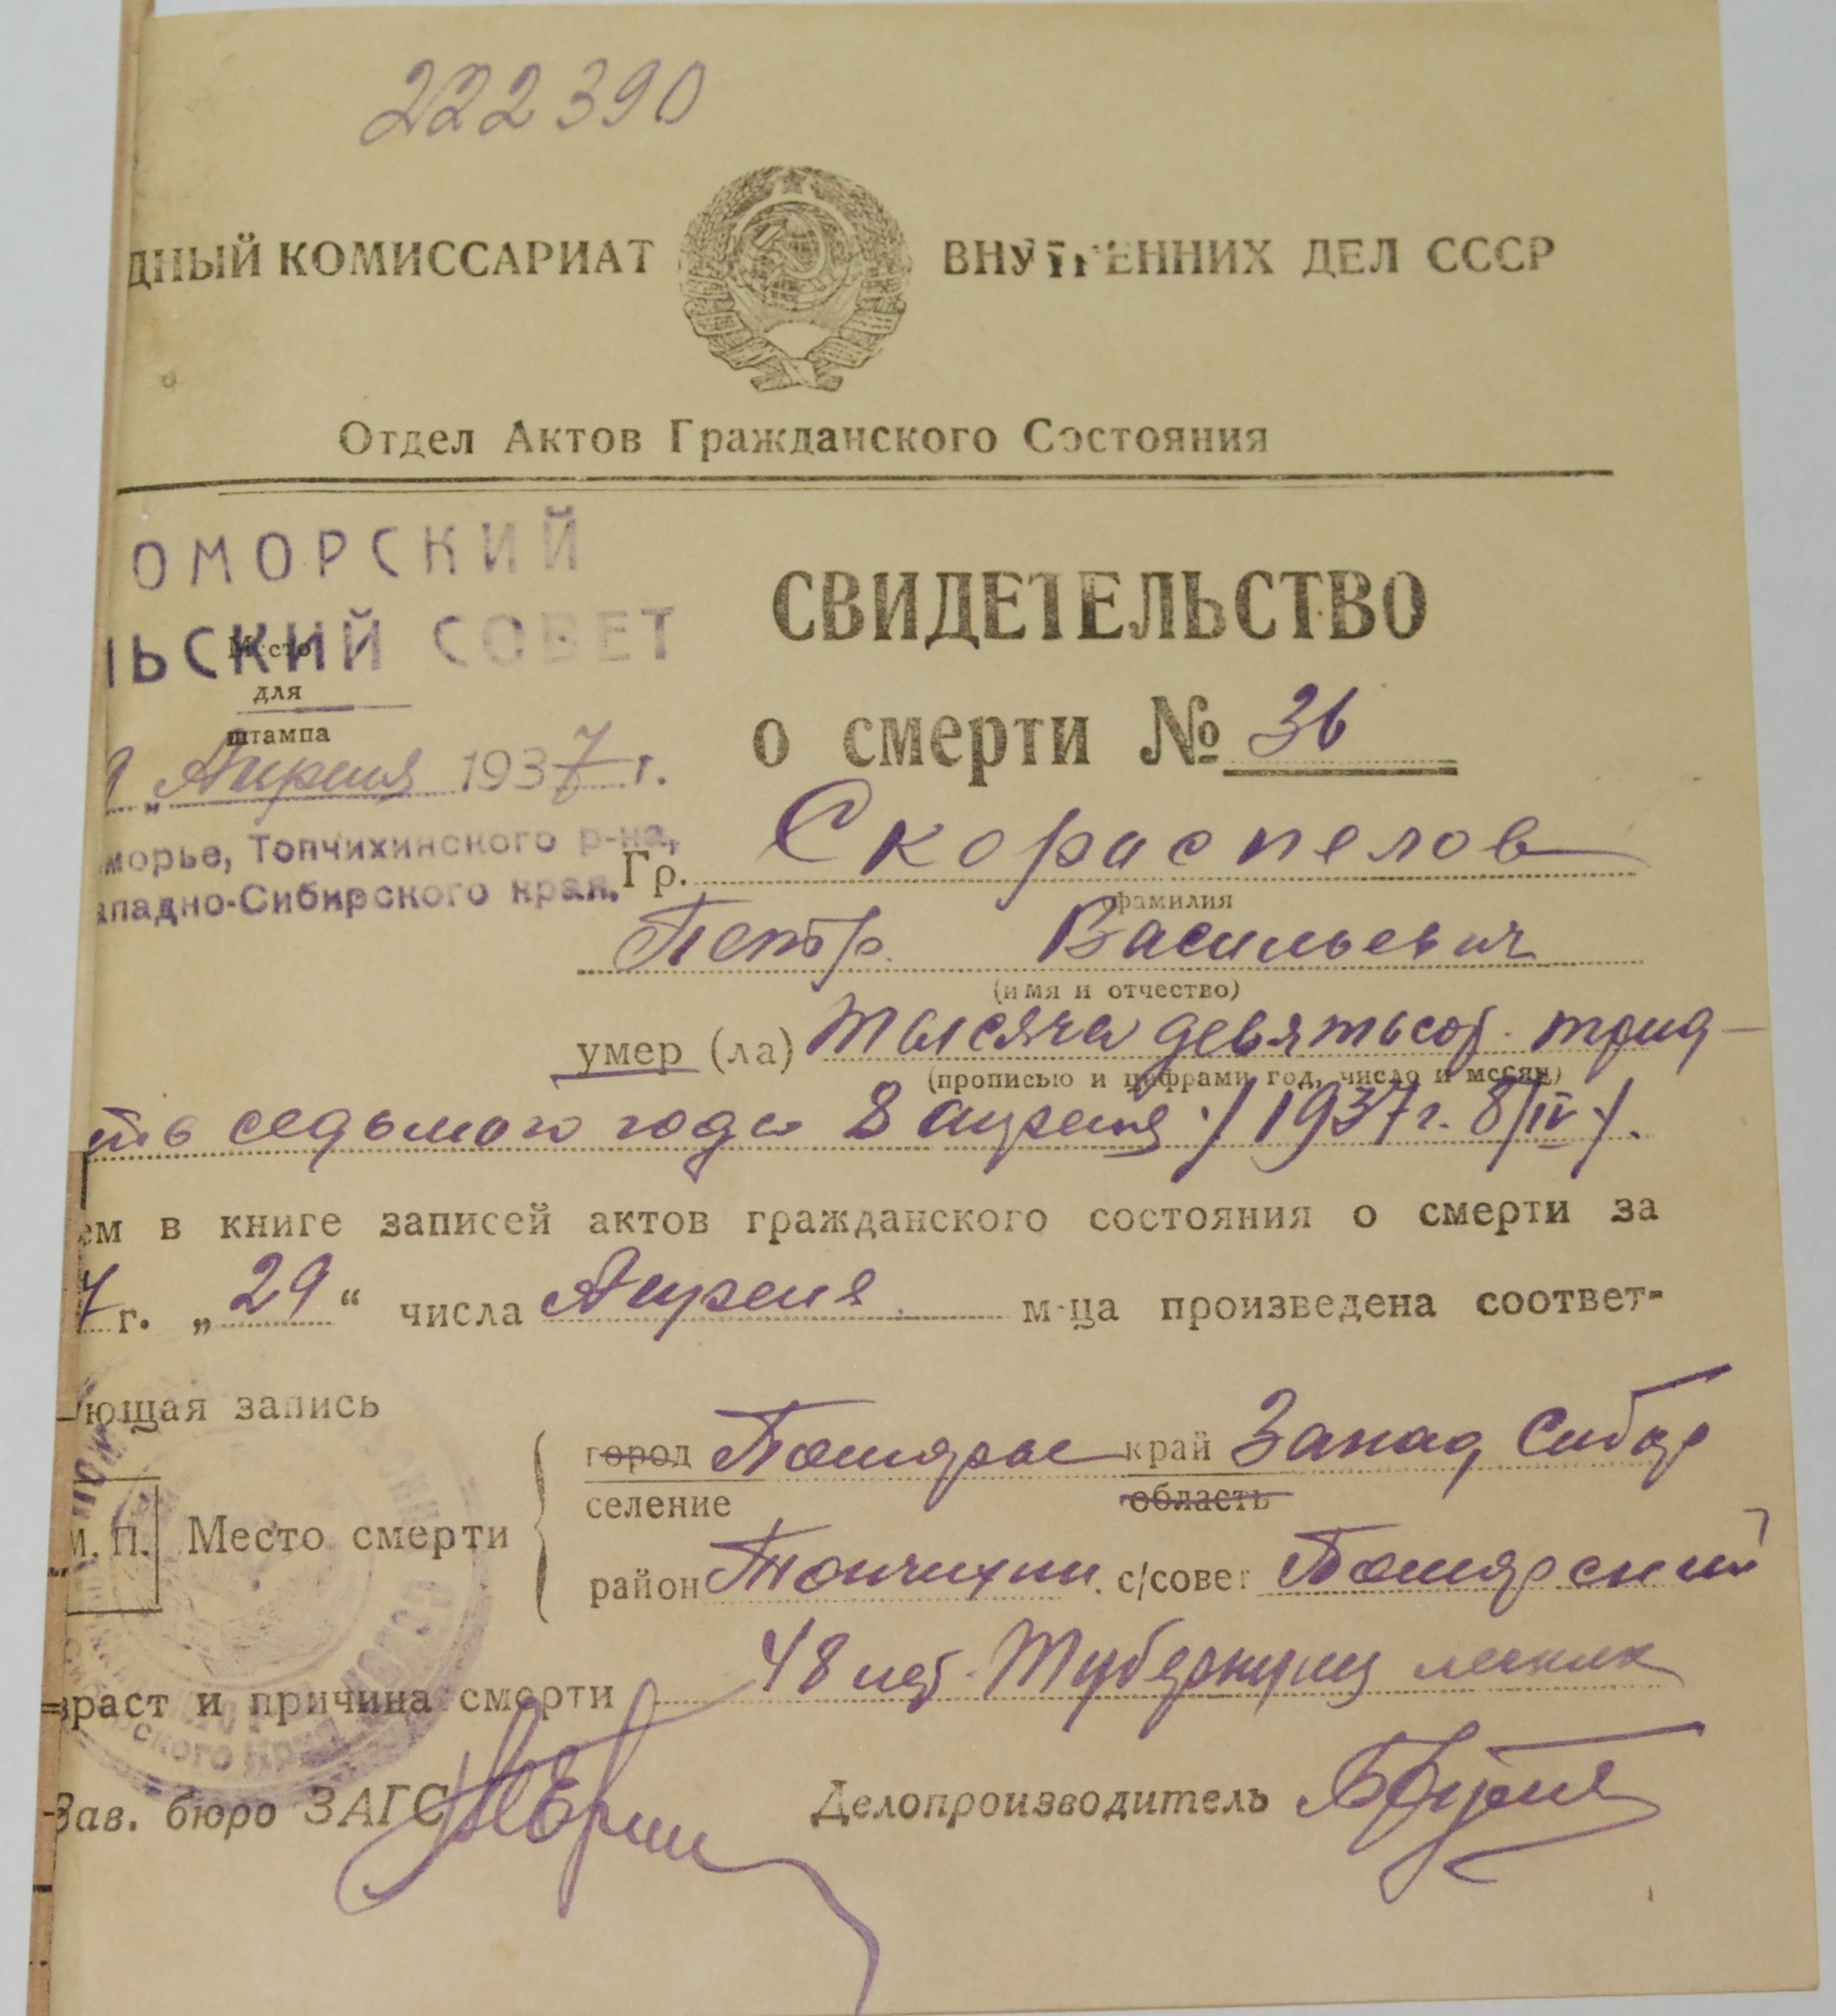 222390
ДНЫЙ КОМИССАРИАТ ВНУТРЕННИХ ДЕЛ СССР
Отдел Актов Гражданского Состояния
ОМОРСКИЙ
ЛЬСКИЙ СОВЕТ
Место
для
штампа
9 „ Апреля 1937 г.
морье, Топчихинского р-на,
ападно-Сибирского края.
СВИДЕТЕЛЬСТВО
о смерти № 36
Гр. Скораспелов
фамилия
Петр Васильевич
(имя и отчество)
умер (ла) тысяча девятьсот трид-
(прописью и цифрами год, число и месяц)
ть седьмого года 8 апреля /1937 г. 8/IV/.
ем в книге записей актов гражданского состояния о смерти за
7 г. „29“ числа Апреля м-ца произведена соответ-
ющая запись
М. П.
Место смерти
город край Запад Сибир
селение область
район Топчихин. с/совет
зраст и причина смерти 48 лет. Туберкулез легких
Зав. бюро ЗАГС Делопроизводитель